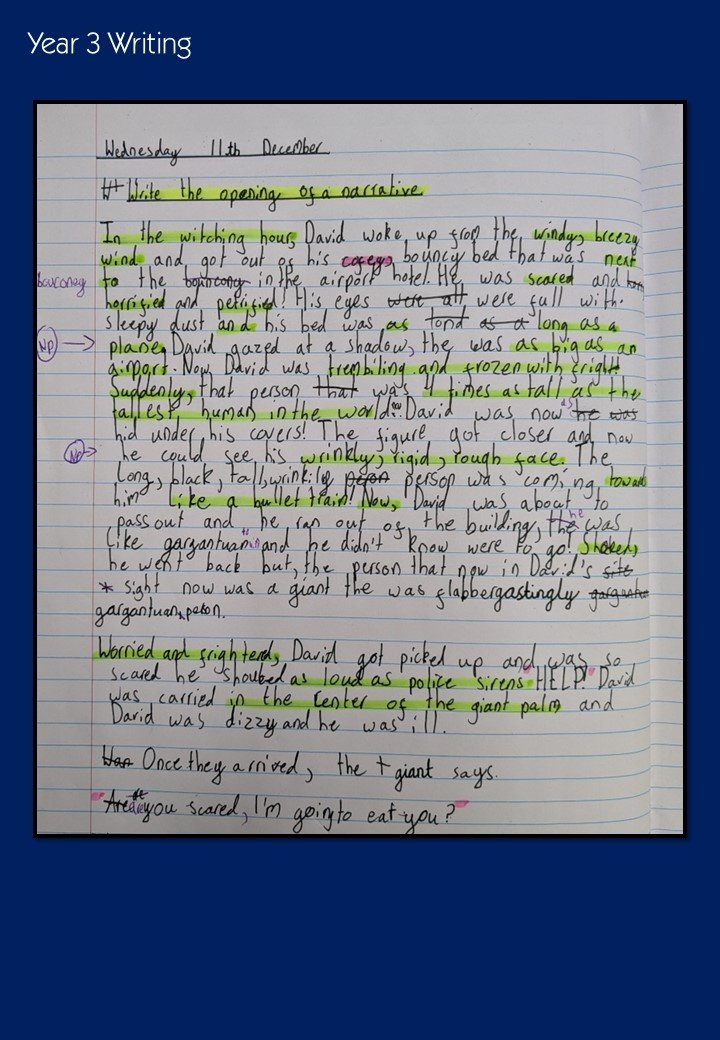 Year 3 Writing
Wednesday 11th December
Write the opening of a narrative
In the witching hour, David woke up from the windy, breezy
wind and got out of his cosey, bouncy bed that was next
bounceny to the bouncony in the airport hotel. He was scared and
horrified and petrified! His eyes were all were full with
sleepy dust and his bed was as tond as a long as a
Np plane. David gazed at a shadow, the was as big as an
airport. Now David was trembiling and frozen with fright
Suddenly, that person that was 4 times as tall as the
tallest human in the world! David was now as he was
hid under his covers! The figure got closer and now
Np he could see his wrinkly, rigid, rough face. The
long, black, tall, wrinkily person was coming toward
him like a bullet train! Now, David was about to
pass out and he ran out of the building, the he was
like gargantuan and he didn't know were to go! Shoked,
he went back but, the person that now in David's site
* sight now was a giant the was flabbergastingly
gargantuan peson.
Worried and frightend, David got picked up and was so
scared he shoubed as loud as police sirens "HELP!" David
was carried in the center of the giant palm and
David was dizzy and he was ill.
Once they arrived, the t giant says.
"Are you scared, I'm going to eat you?"